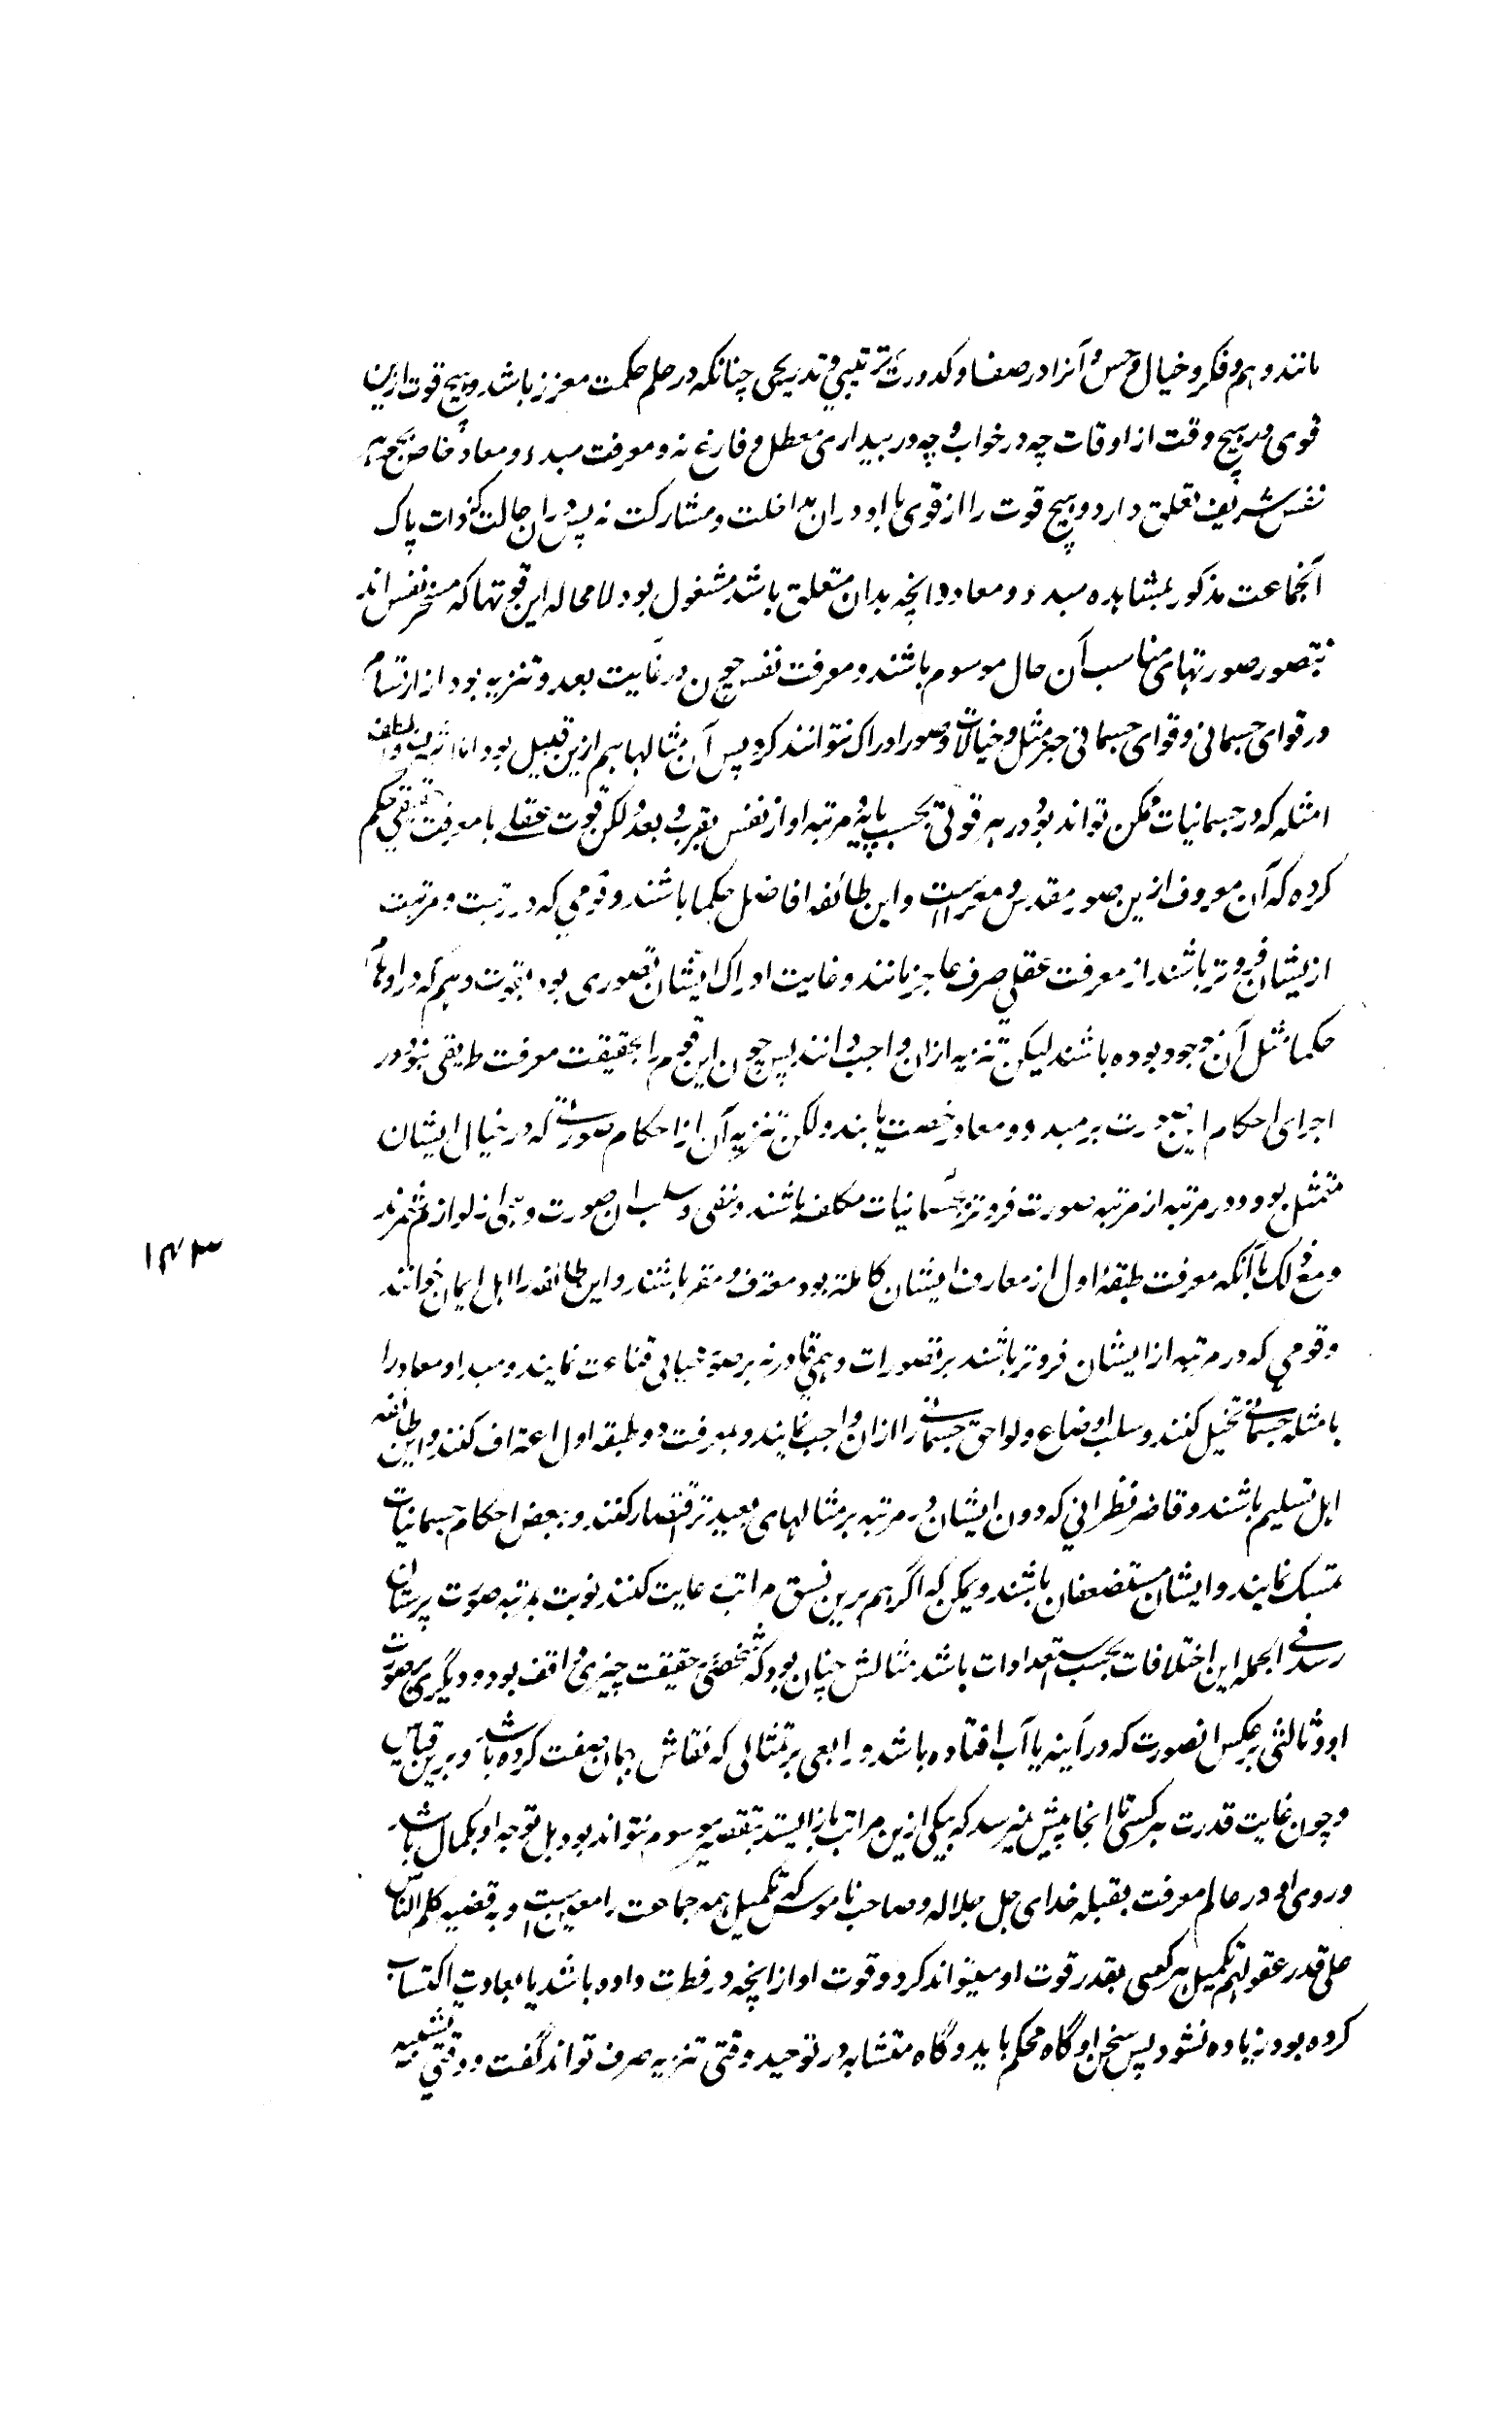 مانند وهم و فکر و خیال و حس و آنرا در صفا و کدورت ترتیبی و تدریجی چنانکه در علم حکمت معزز باشد و هیچ قوت ازین
قوی در هیچ وقت از اوقات چه در خواب و چه در بیداری معطل و فارغ نه و معرفت مبدء و معاد خاص بجوهر
نفس شریف تعلق دارد و هیچ قوت را از قوی با او دران مداخلت و مشارکت نه پس دران حالت که ذات پاک
آنجماعت مذکور بمشاهده مبدء و معاد و انچه بدان متعلق باشد مشغول بود لامحاله این قوتها که مسخر نفس اند
بتصور صورتهای مناسب آن حال موسوم باشند و معرفت نفس چون در غایت بعد و تنزیه بود از ارتسام
در قوای جسمانی و قوای جسمانی جز مثل و خیالات و صور ادراک نتوانند کرد پس آن مثالها هم ازین قبیل بود اما اشرف و الطف
امثله که در جسمانیات ممکن تواند بود در هر قوتی بحسب پایه و مرتبه او از نفس بقرب و بعد لکن قوت عقلی با معرفت حقیقی حکم
کرده که آن معروف ازین صور مقدس و معراست و این طائفه افاضل حکما باشند و قومی که در رتبت و مرتبت
ازیشان فروتر باشند از معرفت عقلی صرف عاجز مانند و غایت ادراک ایشان تصوری بود بقوت وهم که در اوهام
حکما مثل آن موجود بوده باشد لیکن تنزیه ازان واجب دانند پس چون این قوم را بحقیقت معرفت طریقی نبود در
اجرای احکام این صورت بر مبدء و معاد رخصت یابند ولکن تنزیه آن از احکام صورتی که در خیال ایشان
متمثل بود و در مرتبه از مرتبه صورت فروتر بجسمانیات مکلف باشند و نفی و سلب ان صورت و برای از لوازم شمرند
و مع ذلک با آنکه معرفت طبقه اول از معارف ایشان کاملتر بود معترف و مقر باشند و این طائفه را اهل ایمان خوانند
و قومی که در مرتبه از ایشان فروتر باشند بر تصورات وهمی قادر نه بر صور خیالی قناعت نمایند و مبدا و معاد را
بامثله جسمانی تخیل کنند و سلب اوضاع و لواحق جسمانی را ازان واجب نمایند و بمعرفت دو طبقه اول اعتراف کنند و این طائفه
اهل تسلیم باشند و قاصر نظرانی که دون ایشان در مرتبه بر مثالهای بعیدتر اقتصار کنند و ببعض احکام جسمانیات
تمسک نمایند و ایشان مستضعفان باشند و یمکن که اگر هم برین نسق مراتب رعایت کنند نوبت بمرتبه صورت پرستان
رسد فی الجمله این اختلافات بحسب استعدادات باشد مثالش چنان بود که شخصی بر حقیقت چیزی واقف بود و دیگری بر صورت
او و ثالثی بر عکس انصورت که در آینه یا آب افتاده باشد و رابعی بر تمثالی که نقاش بهمان صفت کرده باشد و برین قیاس
و چون غایت قدرت هر کسی تا انجا بیش نمیرسد که بیکی ازین مراتب باز ایستد بتقصیر موسوم نتواند بود بل توجه او بکمال باشد
و روی او در عالم معرفت بقبله خدای جل جلاله و صاحب ناموس که تکمیل همه جماعت را معین است و به قضیه کلم الناس
علی قدر عقولهم تکمیل هر کسی بقدر قوت او میتواند کرد و قوت او از انچه در فطرت داده باشد یا بعادت اکتساب
کرده بود زیاده نشود پس سخن او گاه محکم باید و گاه متشابه در توحید وقتی تنزیه صرف تواند گفت و وقتی تشبیه
۱۴۳